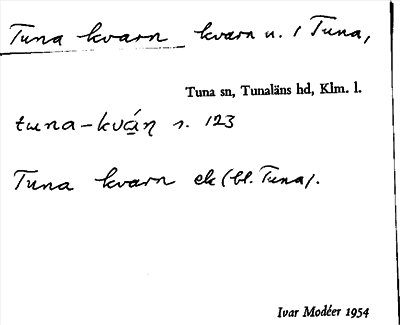 Tuna kvarn kvarn n. i Tuna,
Tuna sn, Tunaläns hd, Klm. l.
tuna-kvá̱ṇ s. 123
Tuna kvarn ek (bl. Tuna).
Ivar Modéer 1954